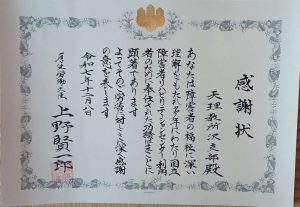 感謝状
天理教所沢支部殿
あなたは障害者の福祉に深い
理解をもたれ多年にわたり国立
障害者リハビリテーションセンター利用
者のために奉仕された功績はまことに
顕著であります
よってそのご労苦に対しここに深く感謝
の意を表します
令和七年十二月八日
厚生労働大臣 上野賢一郎